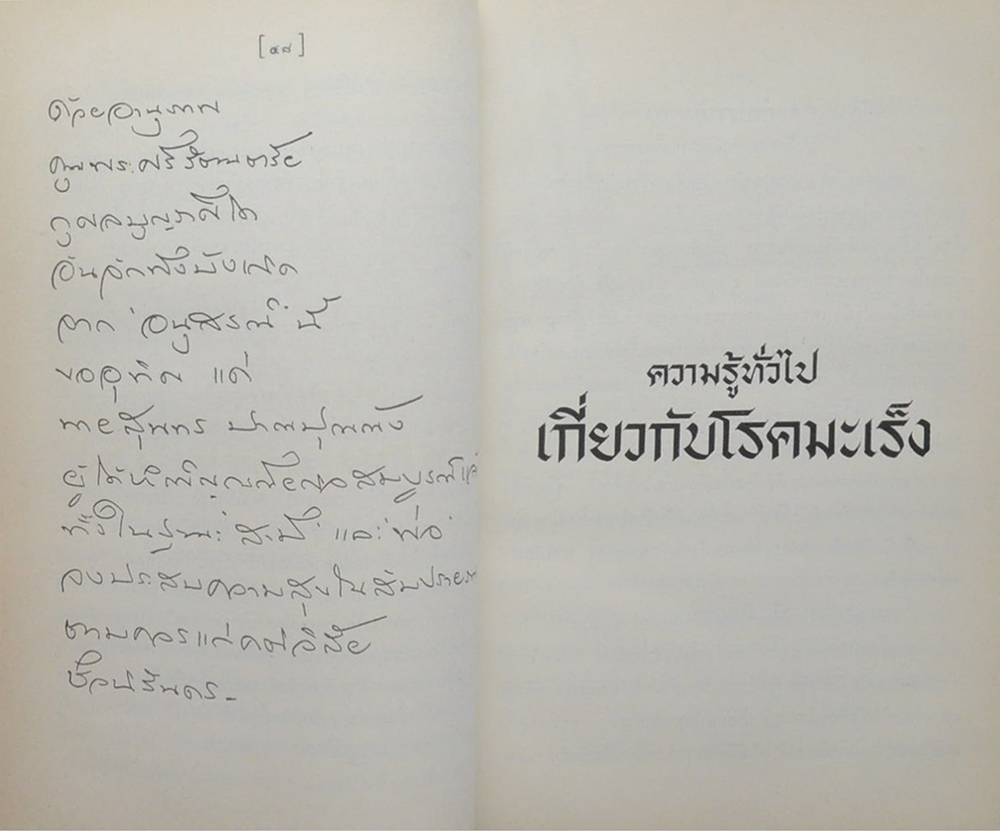 [๕๘]
ด้วยอานุภาพ
คุณพระศรีรัตนตรัย
กุศลบุญราศีใด
อันจักพึงบังเกิด
จาก 'อนุสรณ์' นี้
ขออุทิศ แด่
นายสุนทร ปาณปุณณัง
ผู้ได้
ทั้งในฐานะ 'สามี' และ 'พ่อ'
จงประสบความสุขในสัมปรายภพ
ตามควรแก่คติวิสัย
ชั่วนิรันดร -
ความรู้ทั่วไป
เกี่ยวกับโรคมะเร็ง